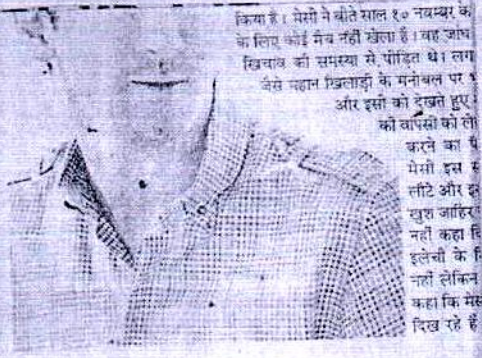 किया है। मेसी ने बीते साल १० नवम्बर के
के लिए कोई मैच नहीं खेला है। वह जांघ
खिचाव की समस्या से पीड़ित थे।
जैसे महान खिलाड़ी के मनोबल पर
और इसी को देखते हुए
की वापसी को
करने का
मेसी इस
लौटे और
खुश जाहिर
नहीं कहा
इलेची के
नहीं लेकिन
कहा कि
दिख रहे हैं